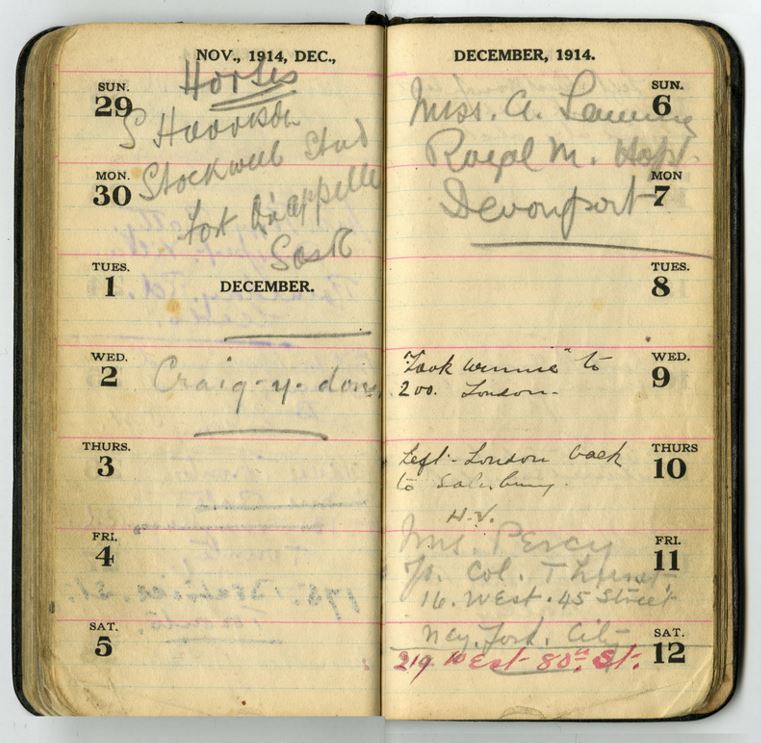 NOV., 1914, DEC.,
Horses
SUN.
29
S Harrison
Stockwell Stud
MON.
30
Fort Qu'appelle
Sask
TUES.
1
DECEMBER.
WED.
2
Craig-y-don
THURS.
3
FRI.
4
175.
St.
Toronto.
SAT.
5
DECEMBER, 1914.
SUN.
6
Miss. A.
Royal M. Hosp.
MON
7
Devonport
TUES.
8
WED.
9
"Took winnie" to
Zoo. London.
THURS
10
Left London back
to Salisbury.
H.V.
FRI.
11
Mrs. Percy
Col.
16. West. 45 Street
New York. City
SAT.
12
219 West 80th St.